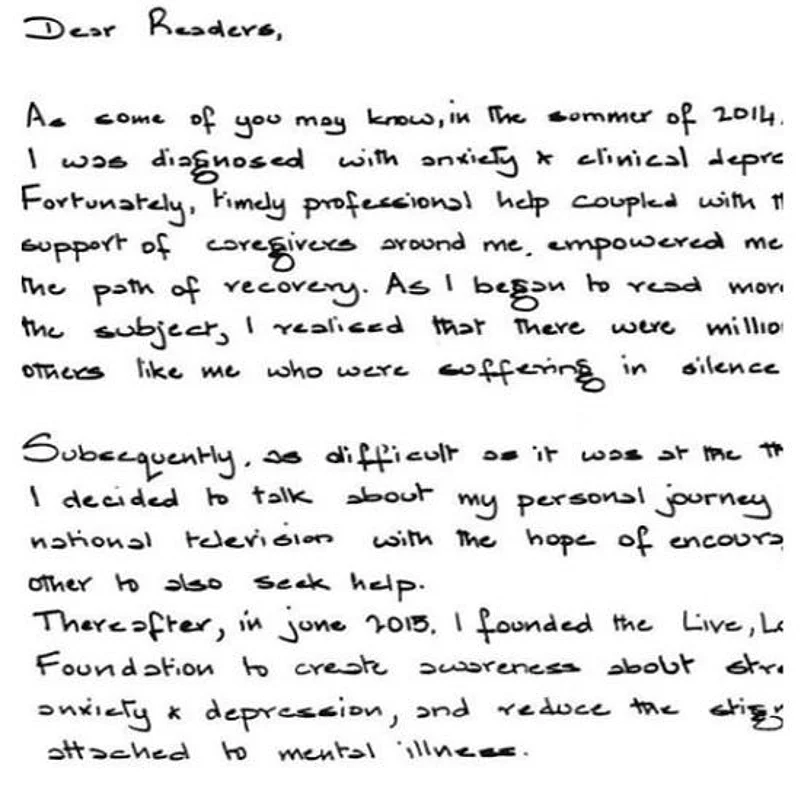 Dear Readers,
As some of you may know, in the summer of 2014.
I was diagnosed with anxiety & clinical depre
Fortunately, timely professional help coupled with th
support of caregivers around me, empowered me
the path of recovery. As I began to read more
the subject, I realised that there were millio
others like me who were suffering in silence
Subsequently, as difficult as it was at the ti
I decided to talk about my personal journey
national television with the hope of encoura
other to also seek help.
Thereafter, in june 2015, I founded the Live, L
Foundation to create awareness about stre
anxiety & depression, and reduce the stig
attached to mental illness.